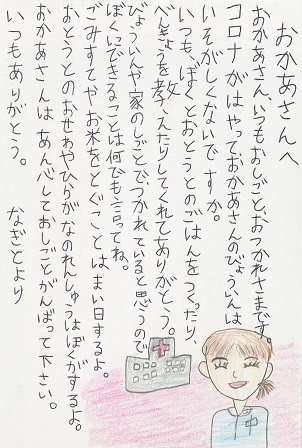 おかあさんへ
おかあさん、いつもおしごとおつかれさまです。
コロナがはやっておかあさんのびょういんは、
いそがしくないですか。
いつも、ぼくとおとうとのごはんをつくったり、
べんきょうを教えたりしてくれてありがとう。
びょういんや家のしごとでつかれていると思うので
ぼくにできることは何でも言ってね。
ごみすてやお米をとぐことはまい日するよ。
おとうとのおせわやひらがなのれんしゅうはぼくがするよ。
おかあさんはあんしんしておしごとがんばって下さい。
いつもありがとう。
なぎとより